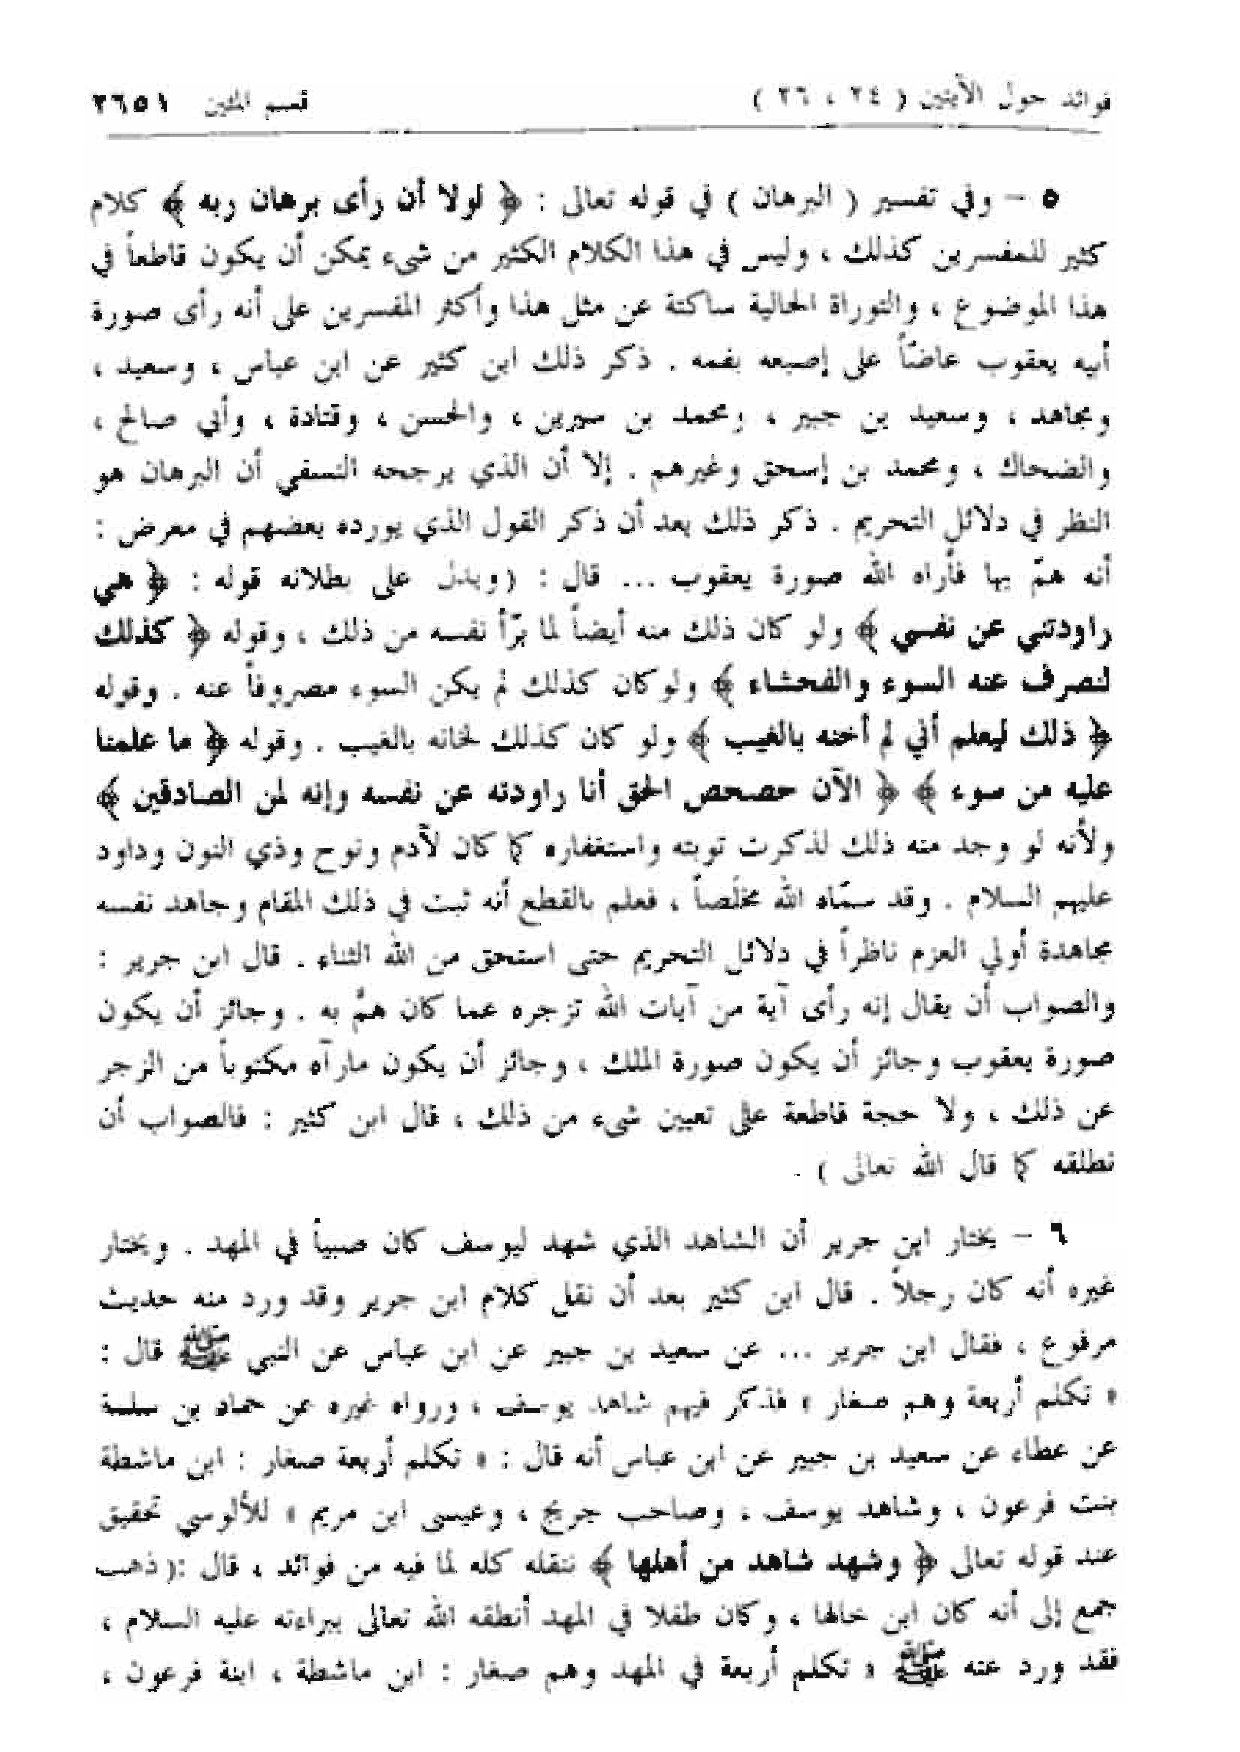 فوائد حول الآيتين ( ٢٤ ، ٢٦ ) قسم المئين ٢٦٥١
٥ – وفي تفسير ( البرهان ) في قوله تعالى : ﴿ لولا أن رأى برهان ربه ﴾ كلام
كثير للمفسرين كذلك ، وليس في هذا الكلام الكثير من شيء يمكن أن يكون قاطعاً في
هذا الموضوع ، والتوراة الحالية ساكتة عن مثل هذا وأكثر المفسرين على أنه رأى صورة
أبيه يعقوب عاضّاً على إصبعه بفمه . ذكر ذلك ابن كثير عن ابن عباس ، وسعيد ،
ومجاهد ، وسعيد بن جبير ، ومحمد بن سيرين ، والحسن ، وقتادة ، وأبي صالح ،
والضحاك ، ومحمد بن إسحق وغيرهم . إلا أن الذي يرجحه النسفي أن البرهان هو
النظر في دلائل التحريم . ذكر ذلك بعد أن ذكر القول الذي يورده بعضهم في معرض :
أنه همّ بها فأراه الله صورة يعقوب ... قال : ( ويدل على بطلانه قوله : ﴿ هي
راودتني عن نفسي ﴾ ولو كان ذلك منه أيضاً لما برّأ نفسه من ذلك ، وقوله ﴿ كذلك
لنصرف عنه السوء والفحشاء ﴾ ولو كان كذلك لم يكن السوء مصروفاً عنه . وقوله
﴿ ذلك ليعلم أني لم أخنه بالغيب ﴾ ولو كان كذلك لخانه بالغيب . وقوله ﴿ ما علمنا
عليه من سوء ﴾ ﴿ الآن حصحص الحق أنا راودته عن نفسه وإنه لمن الصادقين ﴾
ولأنه لو وجد منه ذلك لذكرت توبته واستغفاره كما كان لآدم ونوح وذي النون وداود
عليهم السلام . وقد سمّاه الله مخلَصاً ، فعلم بالقطع أنه ثبت في ذلك المقام وجاهد نفسه
مجاهدة أولي العزم ناظراً في دلائل التحريم حتى استحق من الله الثناء . قال ابن جرير :
والصواب أن يقال إنه رأى آية من آيات الله تزجره عما كان همّ به . وجائز أن يكون
صورة يعقوب وجائز أن يكون صورة الملك ، وجائز أن يكون مارآه مكتوباً من الزجر
عن ذلك ، ولا حجة قاطعة على تعيين شيء من ذلك ، قال ابن كثير : فالصواب أن
نطلقه كما قال الله تعالى ) .
٦ – يختار ابن جرير أن الشاهد الذي شهد ليوسف كان صبياً في المهد . ويختار
غيره أنه كان رجلاً . قال ابن كثير بعد أن نقل كلام ابن جرير وقد ورد منه حديث
مرفوع ، فقال ابن جرير ... عن سعيد بن جبير عن ابن عباس عن النبي ﷺ قال :
« تكلم أربعة وهم صغار » فذكر فيهم شاهد يوسف ، ورواه غيره عن حماد بن سلمة
عن عطاء عن سعيد بن جبير عن ابن عباس أنه قال : « تكلم أربعة صغار : ابن ماشطة
بنت فرعون ، وشاهد يوسف ، وصاحب جريج ، وعيسى ابن مريم » للألوسي تحقيق
عند قوله تعالى ﴿ وشهد شاهد من أهلها ﴾ ننقله كله لما فيه من فوائد ، قال :( ذهب
جمع إلى أنه كان ابن خالها ، وكان طفلا في المهد أنطقه الله تعالى ببراءته عليه السلام ،
فقد ورد عنه ﷺ « تكلم أربعة في المهد وهم صغار : ابن ماشطة ، ابنة فرعون ،